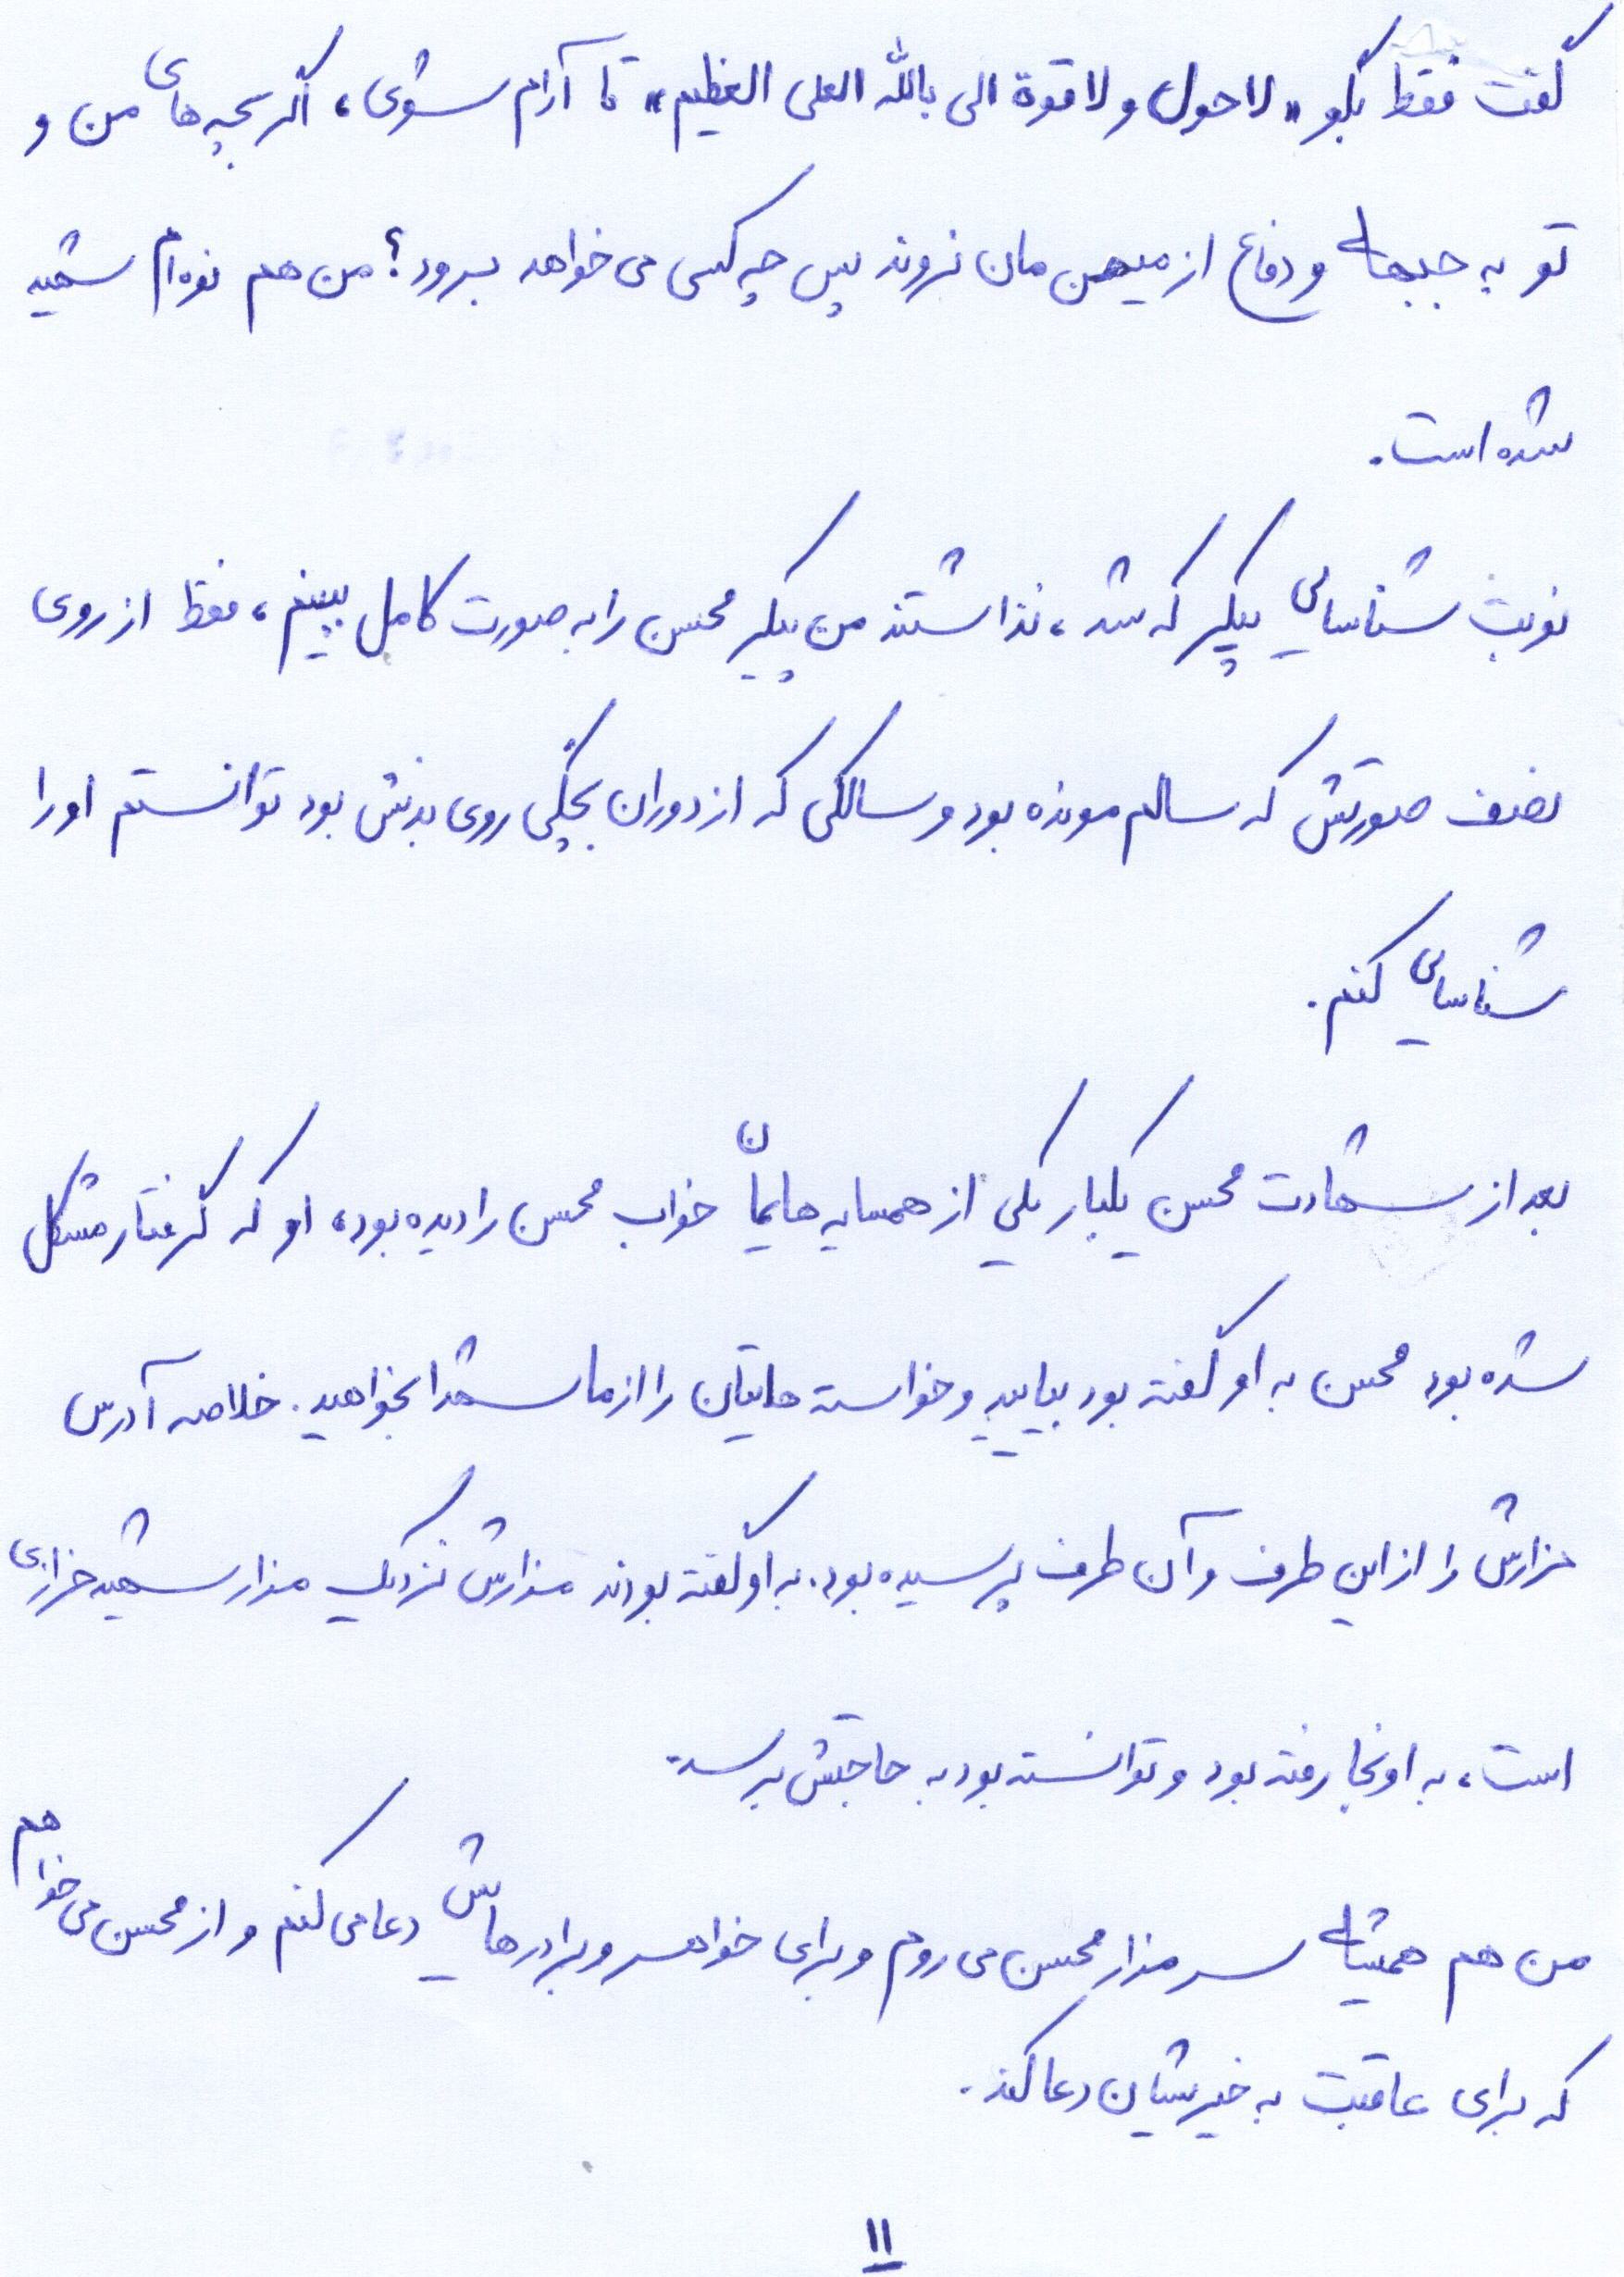 گفت فقط بگو «لاحول ولا قوة الی بالله العلی العظیم» تا آرام شوی، اگر بچه های من و
تو به جبهه و دفاع از میهن مان نروند پس چه کسی می خواهد برود؟ من هم نوه ام شهید
شده است.
نوبت شناسایی پیکر که شد، نذاشتند من پیکر محسن را به صورت کامل ببینم، فقط از روی
نصف صورتش که سالم مونده بود و سالکی که از دوران بچگی روی بدنش بود توانستم او را
شناسایی کنم.
بعد از شهادت محسن یکبار یکی از همسایه هایمان خواب محسن را دیده بود، او که گرفتار مشکل
شده بود محسن به او گفته بود بیایید و خواسته هایتان را از ما شهدا بخواهید. خلاصه آدرس
مزارش را از این طرف و آن طرف پرسیده بود. به او گفته بودند مزارش نزدیک مزار شهید خرازی
است، به اونجا رفته بود و توانسته بود به حاجتش برسد.
من هم همیشه سر مزار محسن می روم و برای خواهر و برادرهایش دعا می کنم و از محسن می خواهم
که برای عاقبت به خیریشان دعا کند.
۱۱